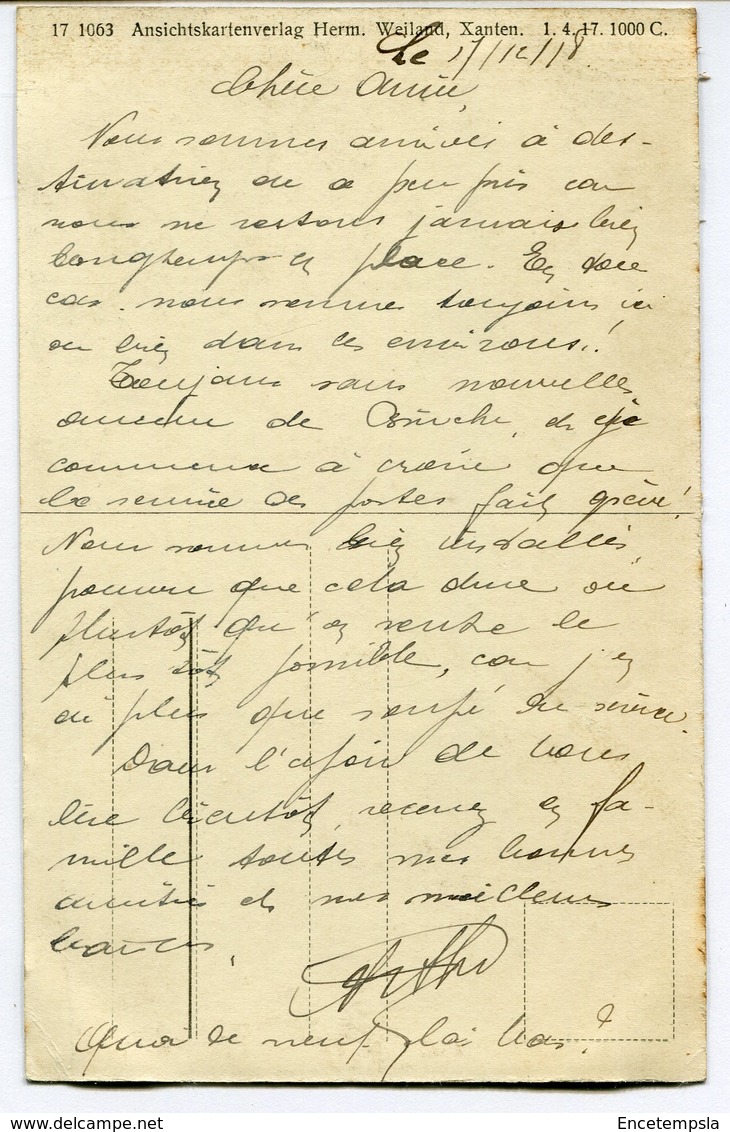 17 1063 Ansichtskartenverlag Herm. Weiland, Xanten. 1. 4. 17. 1000 C.
Le 17/12/18.
Chère Amie,
Nous sommes arrivés à des-
tination ou a peu près car
nous ne restons jamais bien
longtemps en place. En tout
cas nous sommes toujours ici
ou bien dans les environs!
Toujours sans nouvelles
aucune de et je
commence à croire que
le service des postes fait grève!
Nous sommes bien installés,
pourvu que cela dure ou
plutôt qu'on rentre le
plus tôt possible, car j'en
ai plus que soupé du service.
Dans l'espoir de vous
lire bientôt, recevez en fa-
mille toutes mes bonnes
amitiés et mes meilleurs
baisers,
Arthur
Quoi de neuf là bas?
www.delcampe.net
Encetempsla